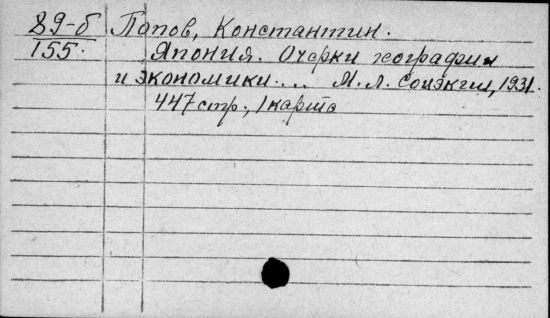 89-б Попов, Константин.
155. Япония. Очерки географии
и экономики... М.Л. Соцэкгиз, 1931.
447 стр., 1 карта